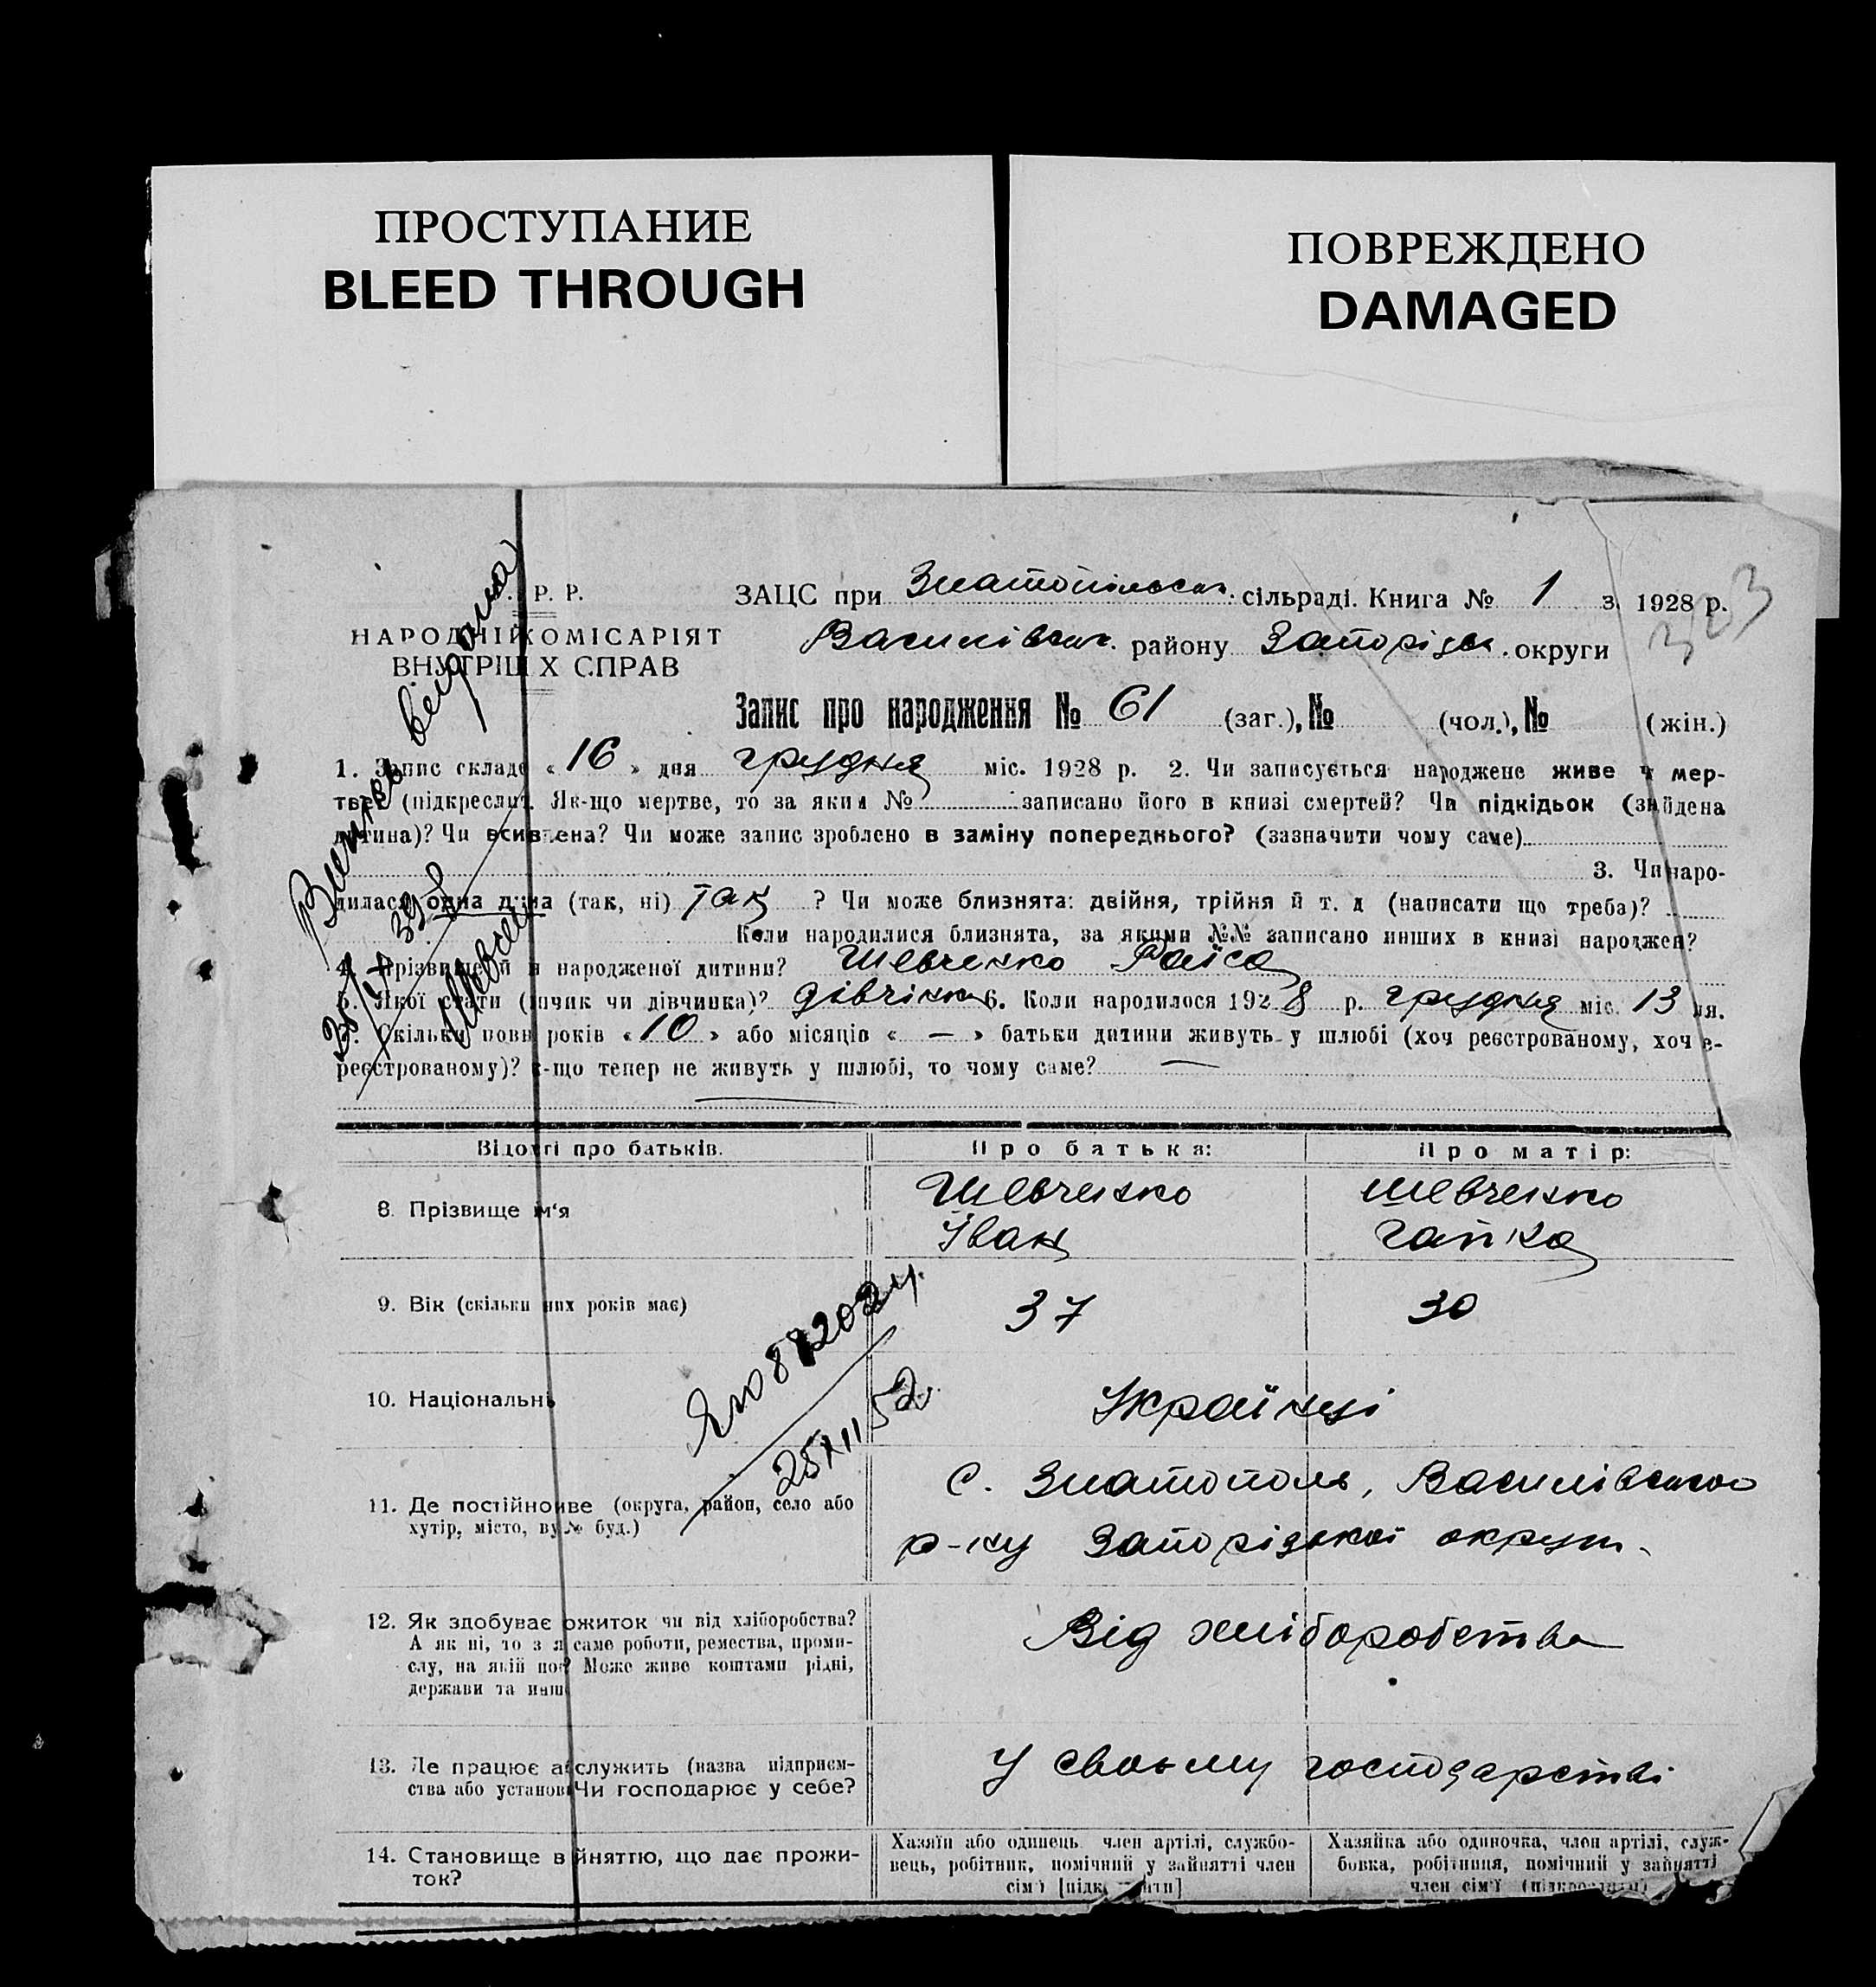 ПРОСТУПАНИЕ
BLEED THROUGH
ПОВРЕЖДЕНО
DAMAGED
Р. Р.
НАРОДНІЙ КОМІСАРІЯТ
ВНУТРІШ Х СПРАВ
ЗАЦС при Златопільськ. сільраді. Книга № 1 з 1928 р.
Василівськ. району Запорізьк. округи
323
Запис про народження № 61 (заг.), № (чол.), № (жін.)
1. Запис складе « 16 » дня грудня міс. 1928 р. 2. Чи записується народжене живе ч мер-
тве (підкреслит. Як-що мертве, то за яким № записано його в книзі смертей? Чи підкідьок (знайдена
дитина)? Чи всиновлена? Чи може запис зроблено в заміну попереднього? (зазначити чому саме)
3. Чи наро-
дилася одна дина (так, ні) так ? Чи може близнята: двійня, трійня й т. д (написати що треба)?
Коли народилися близнята, за якими №№ записано инших в книзі народжен?
4. Прізвище й н народженої дитини? Шевченко Раїса
5. Якої стати (пчик чи дівчинка)? дівчінка 6. Коли народилося 1928 р. грудня міс. 13 дня.
Скільки повн років « 10 » або місяців « — » батьки дитини живуть у шлюбі (хоч реєстрованому, хоч е-
реєстрованому)? к-що тепер не живуть у шлюбі, то чому саме? —
Витяг видано
Відомті про батьків.
Про батька:
Про матір:
8. Прізвище ім'я
Шевченко
Іван
Шевченко
Гапка
9. Вік (скільки них років має)
37
30
10. Національнь
Українці
11. Де постійно иве (округа, район, село або
хутір, місто, ву № буд.)
с. Златополь, Василівського
р-ну Запорізької округи.
12. Як здобуває ожиток чи від хліборобства?
А як ні, то з я саме роботи, ремества, проми-
слу, на якій по? Може живе коштами рідні,
держави та инш
Від хліборобства
13. Де працює а служить (назва підприєм-
ства або установ Чи господарює у себе?
У своєму господарстві
14. Становище в йняттю, що дає прожи-
ток?
Хазяїн або одинець член артілі, службо-
вець, робітник, помічний у зайнятті член
сім'ї
Хазяйка або одиночка, член артілі, служ-
бовка, робітниця, помічний у зайнятті
член сім'ї